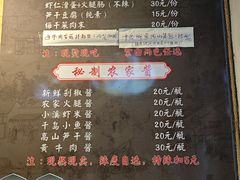 虾仁滑蛋+火腿肠(不辣) 30元/份
笋干豆腐(纯素) 15元/份
猫干菜肉末 20元/份
注:现烫现吃
秘制农家酱
新鲜剁椒酱 20元/瓶
农家火腿酱 20元/瓶
小溪虾米酱 20元/瓶
千岛小鱼酱 20元/瓶
高山笋干酱 20元/瓶
黄牛肉酱 30元/瓶
注:现熬现卖,辣度自选,特辣加5元